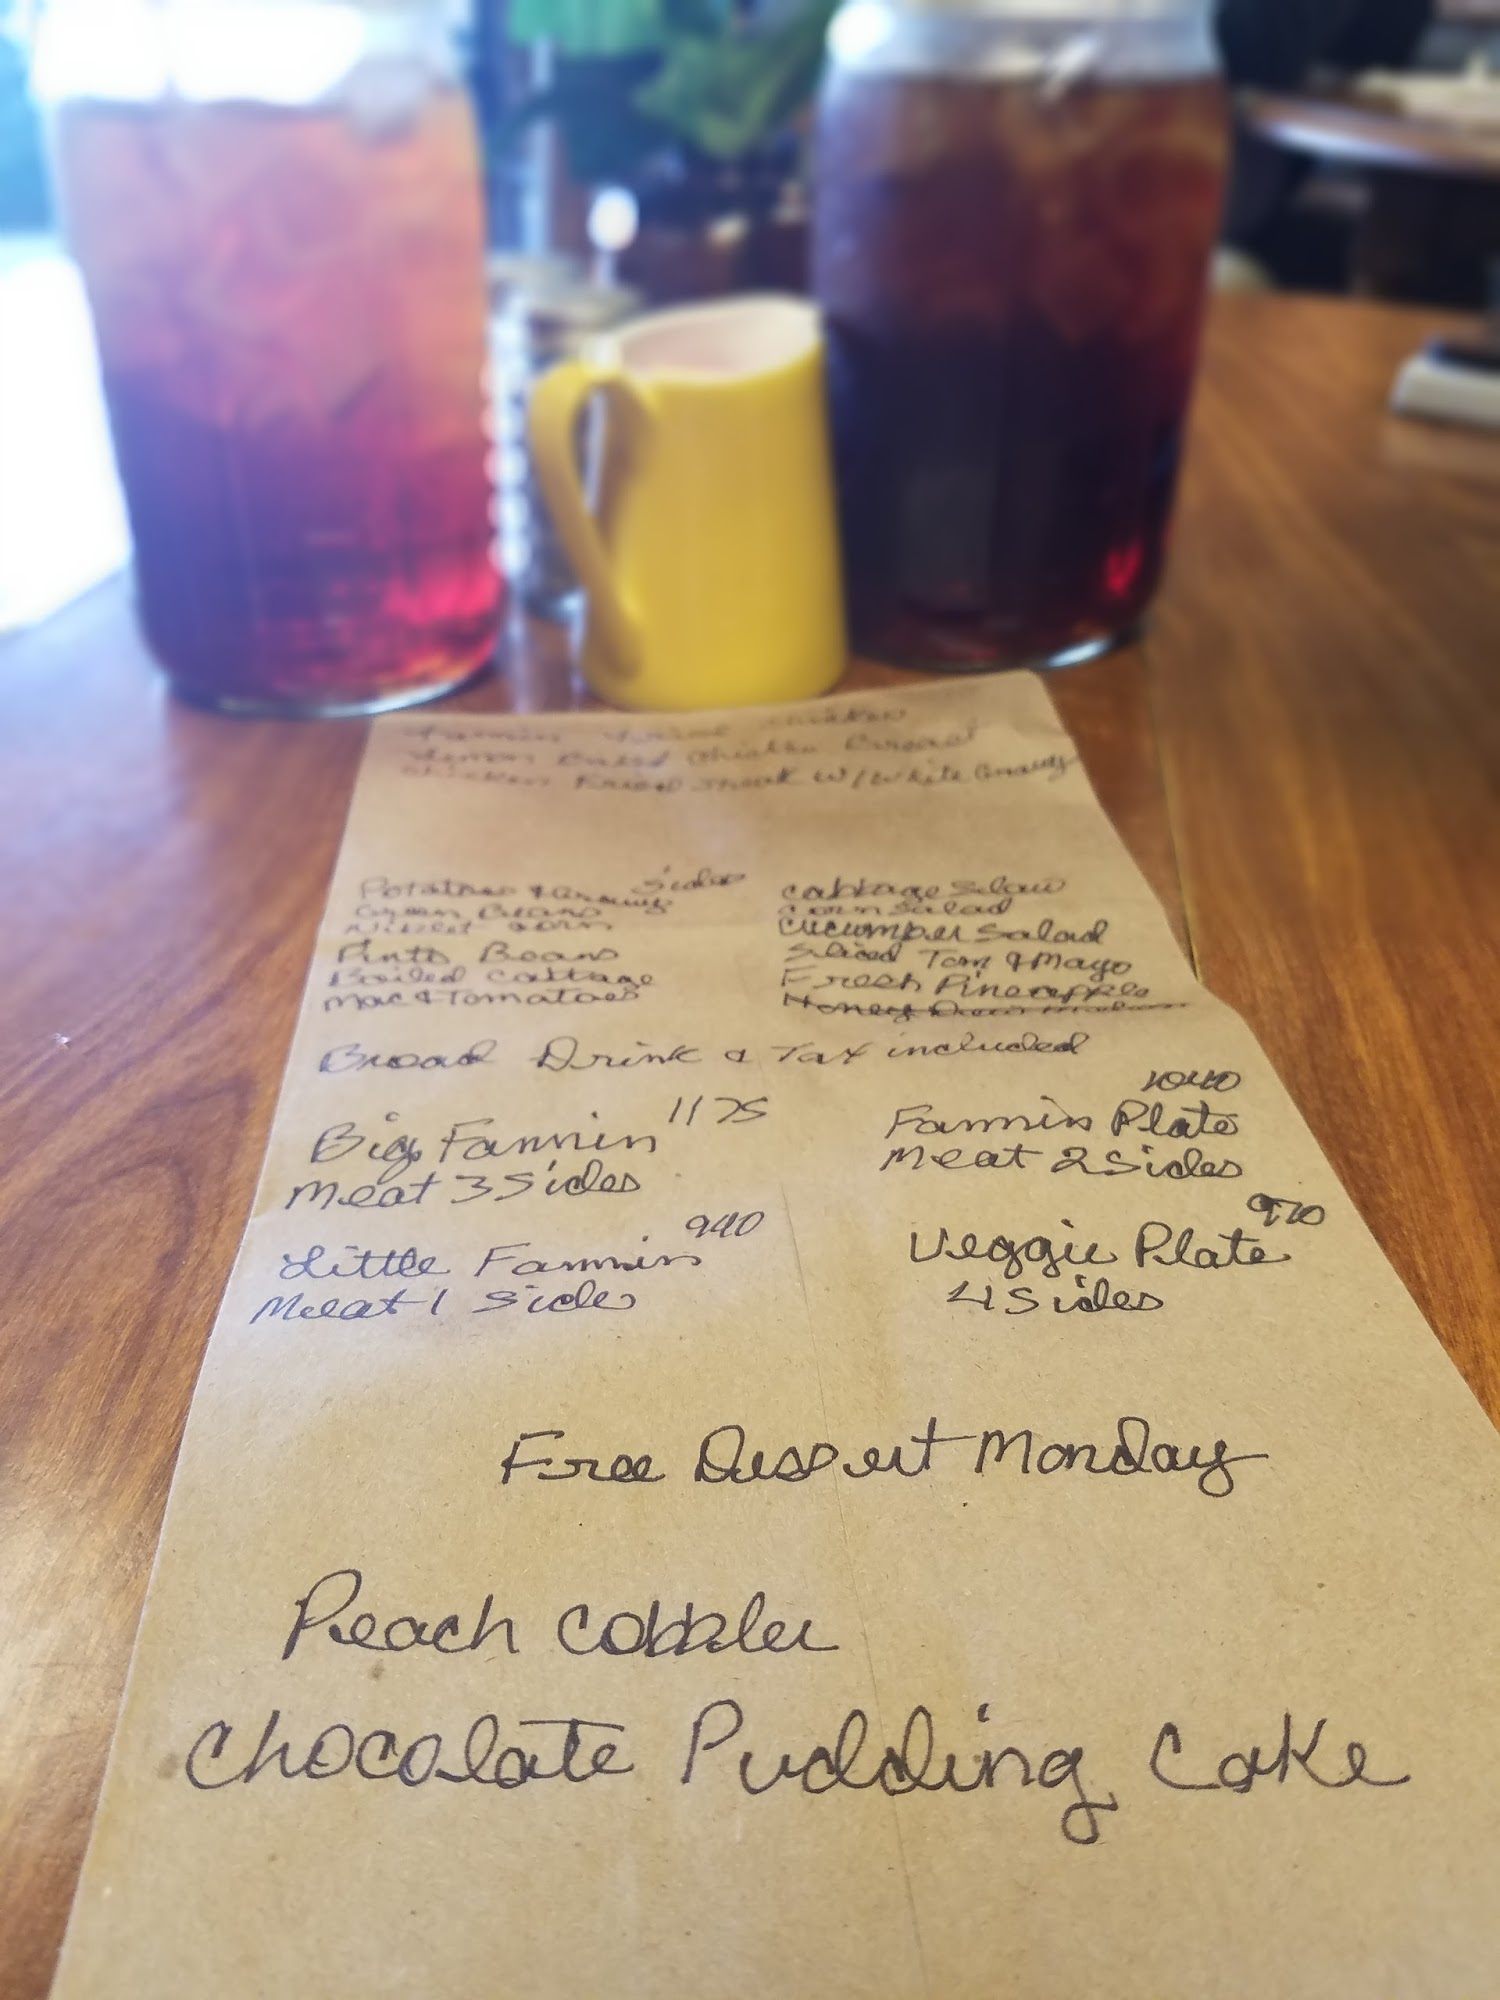 Fannin Fried Chicken
Lemon Baked Chicken Breast
Chicken Fried Steak w/White Gravy
Sides
Potatoes & Gravy
Green Beans
Niblet Corn
Pinto Beans
Boiled Cabbage
Mac & Tomatoes
Cabbage Slaw
Corn Salad
Cucumber Salad
Sliced Tom & Mayo
Fresh Pineapple
Honey Dew Melon
Bread Drink & Tax included
Big Fannin 1175
Meat 3 Sides
Fannin Plate 1040
Meat 2 Sides
Little Fannin 940
Meat 1 Side
Veggie Plate 970
4 Sides
Free Dessert Monday
Peach Cobbler
Chocolate Pudding Cake